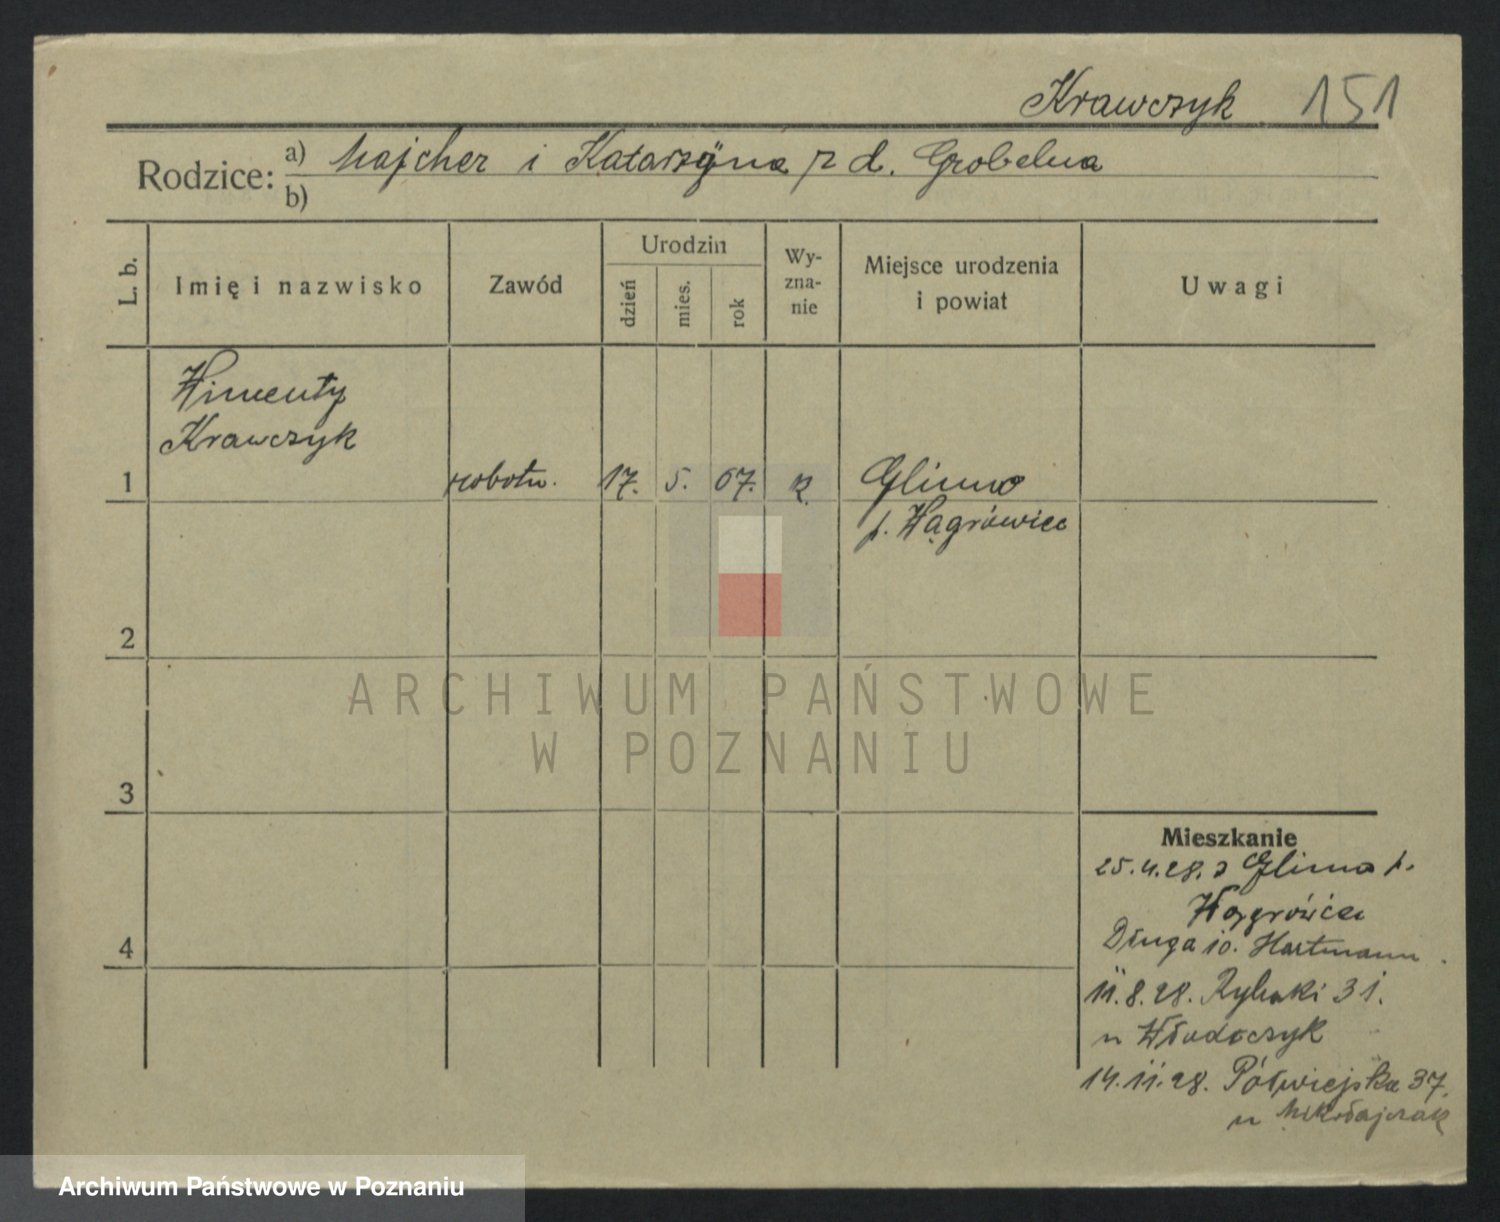 Krawczyk 151
Rodzice: a) Majcher i Katarzyna z d. Grobelna
b)
L. b.
Imię i nazwisko
Zawód
Urodzin
dzień
mies.
rok
Wy-
zna-
nie
Miejsce urodzenia
i powiat
Uwagi
Wincenty
Krawczyk
1 robotn. 17. 5. 07. k Glinno
p. Wągrówiec
2
ARCHIWUM PAŃSTWOWE
W POZNANIU
3
Mieszkanie
25.4.28. z Glinno p.
Wągrówiec
4
Długa 10. Hartmann
11.8.28. Rybaki 31.
u Włodarczyk
14.11.28. Półwiejska 37.
u Mikołajczak
Archiwum Państwowe w Poznaniu